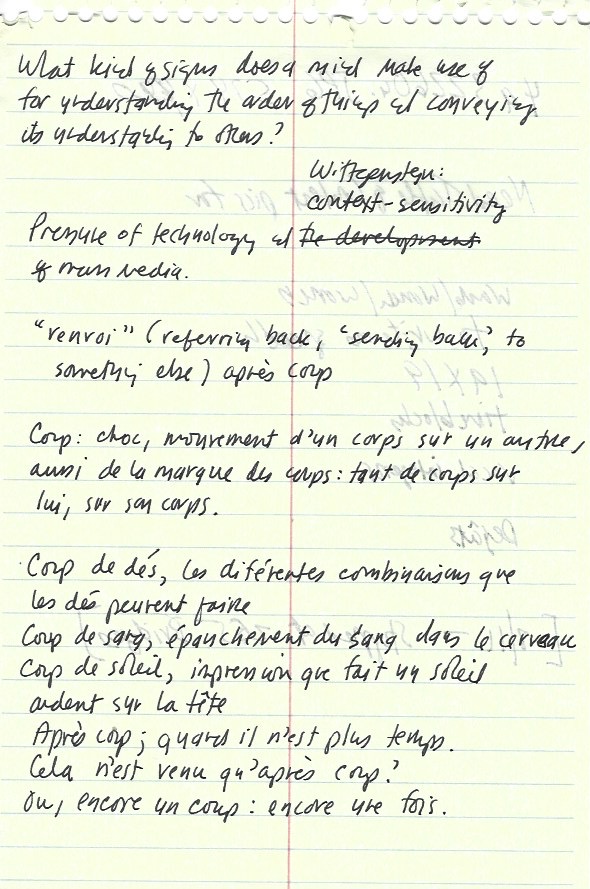 What kind of signs does a mind make use of
for understanding the order of things and conveying
its understanding to others?
Wittgenstein:
context-sensitivity
Pressure of technology and the development
of mass media.
"renvoi" (referring back, "sending back," to
something else) après coup
Coup: choc, mouvement d'un corps sur un autre,
aussi de la marque des coups: tant de coups sur
lui, sur son corps.
Coup de dés, les différentes combinaisons que
les dés peuvent faire
Coup de sang, épanchement du sang dans le cerveau
Coup de soleil, impression que fait un soleil
ardent sur la tête
Après coup; quand il n'est plus temps.
Cela n'est venu qu'après coup?
Ou, encore un coup: encore une fois.